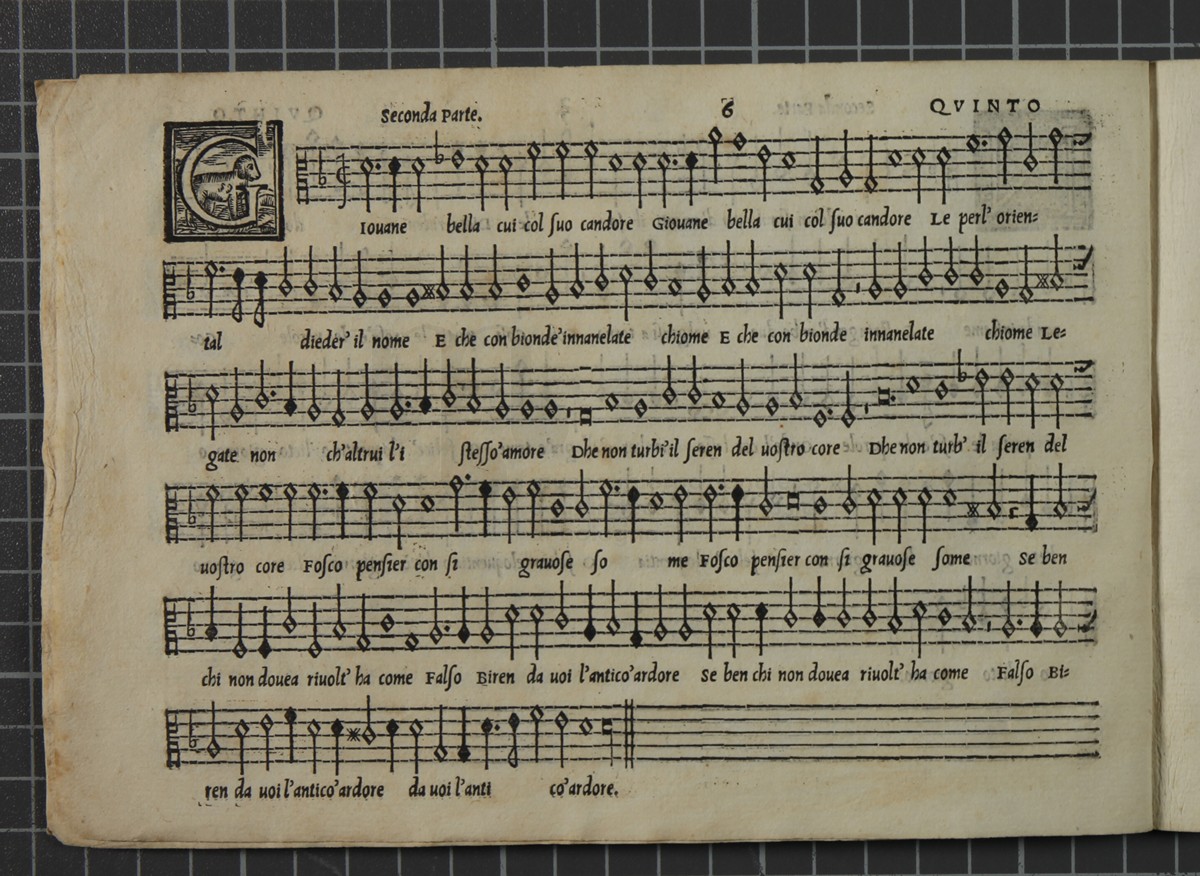 Seconda Parte. 6 QVINTO
G
Iouane bella cui col ſuo candore Giouane bella cui col ſuo candore Le perl' orien=
tal dieder' il nome E che con bionde' innanelate chiome E che con bionde innanelate chiome Le=
gate non ch'altrui l'i ſteſſo'amore Dhe non turbi'il ſeren del uoſtro core Dhe non turb' il ſeren del
uoſtro core Foſco penſier con ſi grauoſe ſo me Foſco penſier con ſi grauoſe ſome Se ben
chi non douea riuolt' ha come Falſo Biren da uoi l'antico'ardore Se ben chi non douea riuolt' ha come Falſo Bi=
ren da uoi l'antico'ardore da uoi l'anti co'ardore.